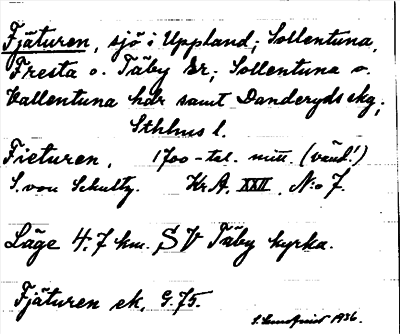 Fjäturen, sjö i Uppland; Sollentuna,
Fresta o. Täby sr; Sollentuna o.
Vallentuna hdr samt Danderyds skg;
Sthlms l.
Fieturen, 1700-tal. mitt. (vänd!)
S. von Schultz. Kr A. XXII. N:o 7.
Läge 4,7 km. SV Täby kyrka.
Fjäturen ek. G. 75.
1936.